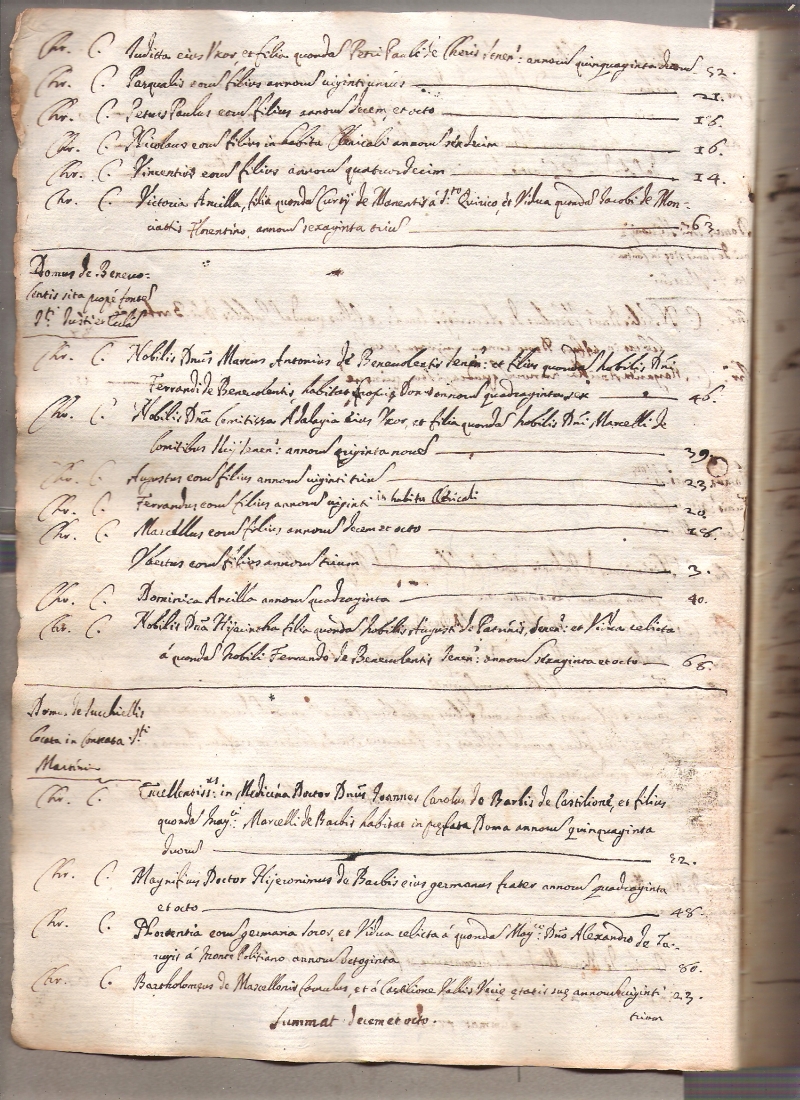 Chr. C. Juditta eius Uxor, et filia quondã Petri Pauli de Cheris Senen: annorũ quinquaginta duorũ 52.
Chr. C. Pasqualis eorũ filius annorũ viginti unius 21.
Chr. C. Petrus Paulus eorũ filius annorũ decem, et octo 18.
Chr. C. Nicolaus eorũ filius in habitu Clericali annorũ sexdecim 16.
Chr. C. Vincentius eorũ filius annorũ quatuordecim 14.
Chr. C. Victoria Ancilla, filia quondã Curtij de Manentis à S.to Quirico, et Vidua quondã Jacobi de Mon-
Florentino, annorũ sexaginta trium 63.
Domus de Benevo-
lentis sita propè fontẽ
S.ti Justi
Chr. C. Nobilis Dnũs Marcus Antonius de Benevolentis Senen: et filius quondã Nobilis Dni
Ferrandi de Benevolentis habitat annorũ quadraginta sex 46.
Chr. C. Nobilis Dñã Comitissa Adalagia eius Uxor, et filia quondã Nobilis Dni Marcelli de
Comitibus Senen: annorũ triginta novẽ 39.
Chr. C. eorũ filius annorũ viginti trium 23.
Chr. C. Ferrandus eorũ filius annorũ viginti in habitu Clericali 20.
Chr. C. Marcellus eorũ filius annorũ decem et octo 18.
eorũ filius annorũ trium 3.
Chr. C. Dominica Ancilla annorũ quadraginta 40.
Chr. C. Nobilis Dñã Hijacintha filia quondã Nobilis Augusti de Patrinis, Senen: et Vidua relicta
à quondã Nobili Ferrando de Benevolentis Senen: annorũ sexaginta et octo 68.
Domus de
in Contrata S.ti
Martini
Chr. C. Excellentiss:us in Medicina Doctor Dnũs Joannes Carolus de Barbis de Castilione, et filius
quondã Mag:ci Marcelli de Barbis habitat in prefata Domo annorũ quinquaginta
duorũ 52.
Chr. C. Magnificus Doctor Hijeronimus de Barbis eius germanus frater annorũ quadraginta
et octo 48.
Chr. C. Hortentia eorũ germana soror, et Vidua relicta à quondã Mag:co Dño Alexandro de Ta-
rugis à Monte Politiano annorũ octoginta 80.
Chr. C. Bartholomeus de Marcellonis famulus, et à Castilione Vallis Urcie etatis suę annorũ viginti 23.
trium
Summat decem et octo.